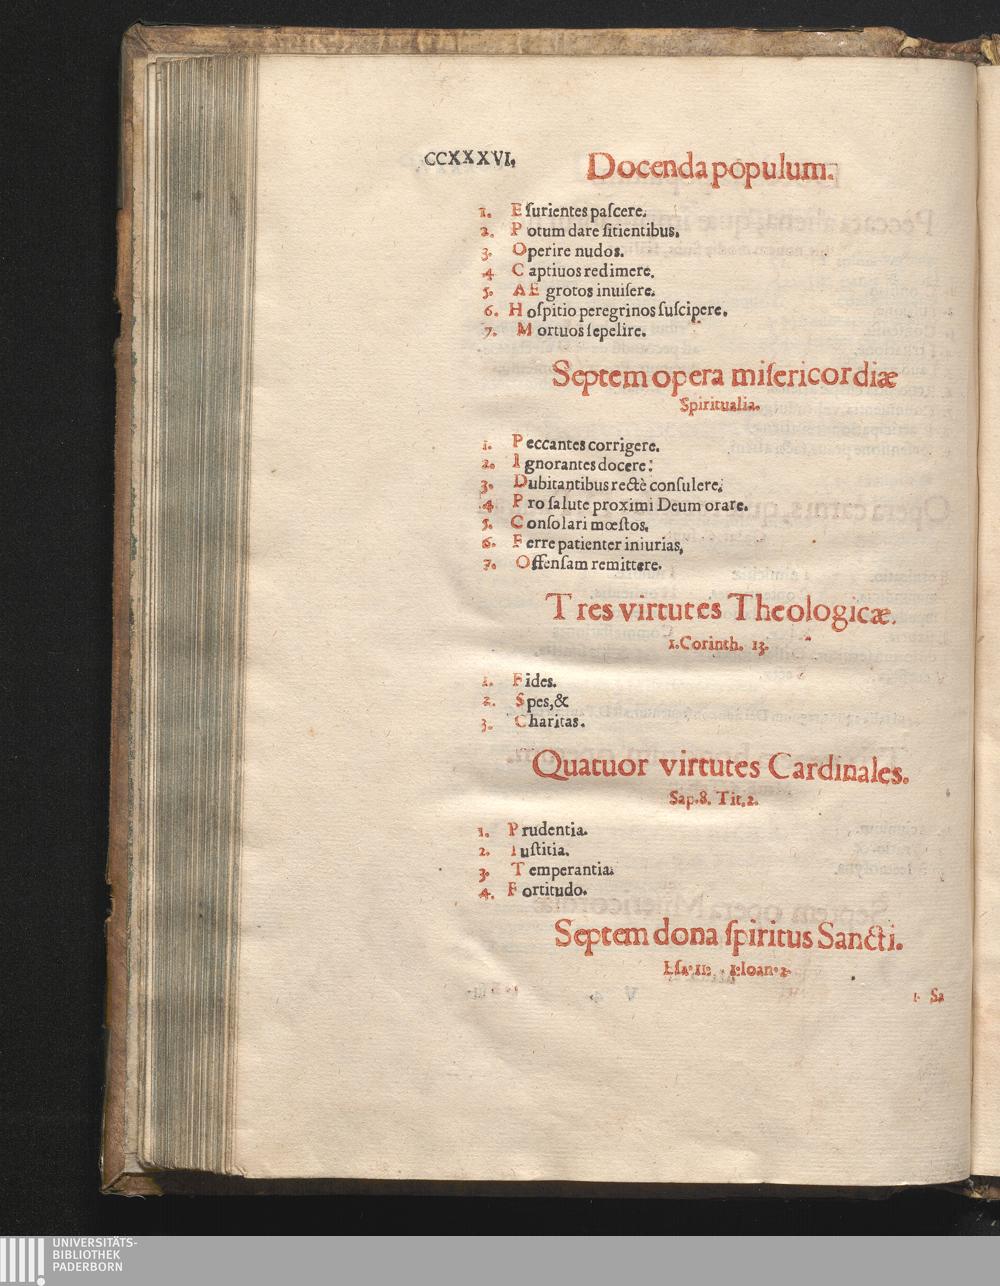 CCXXXVI, Docenda populum.
1. Eſurientes paſcere.
2. Potum dare ſitientibus.
3. Operire nudos.
4 Captiuos redimere.
5. AEgrotos inuiſere.
6. Hoſpitio peregrinos ſuſcipere.
7. Mortuos ſepelire.
Septem opera miſericordiæ
Spiritualia.
1. Peccantes corrigere.
2. Ignorantes docere:
3. Dubitantibus rectè conſulere.
4 Pro ſalute proximi Deum orare.
5. Conſolari mœſtos.
6. Ferre patienter iniurias,
7. Offenſam remittere.
Tres virtutes Theologicæ.
1. Corinth. 13.
1. Fides.
2. Spes, &
3. Charitas.
Quatuor virtutes Cardinales.
Sap. 8. Tit. 2.
1. Prudentia.
2. Iuſtitia.
3. Temperantia.
4. Fortitudo.
Septem dona ſpiritus Sancti.
Eſa. 11. 1. Ioan. 2.
1. Sa
UNIVERSITÄTS-
BIBLIOTHEK
PADERBORN